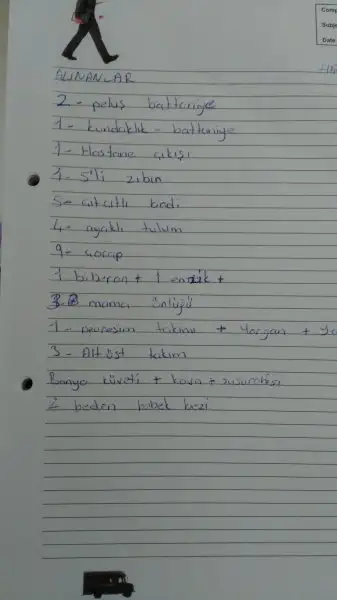 Comp
Subje
Date
ALINANLAR
2 - peluş battaniye
1 - kundaklık - battaniye
1 - Hastane çıkışı
1 - 5'li zıbın
5 - çıtçıtlı bodi
4 - ayaklı tulum
9 - çorap
1 biberon + 1 emzik +
3 mama önlüğü
1 - nevresim takımı + yorgan + ya
3 - Alt üst takım
Banyo küveti + kova +
2 beden bebek bezi